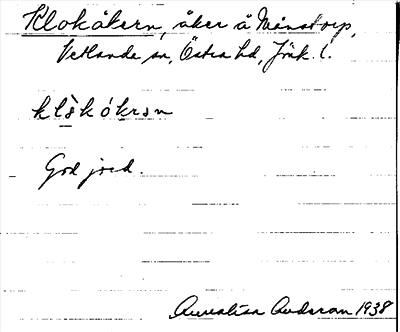 Klokåkern, åker å Månstorp,
Vetlanda sn, Östra hd, Jönk. l.
God jord.
Annalisa Andersson 1938